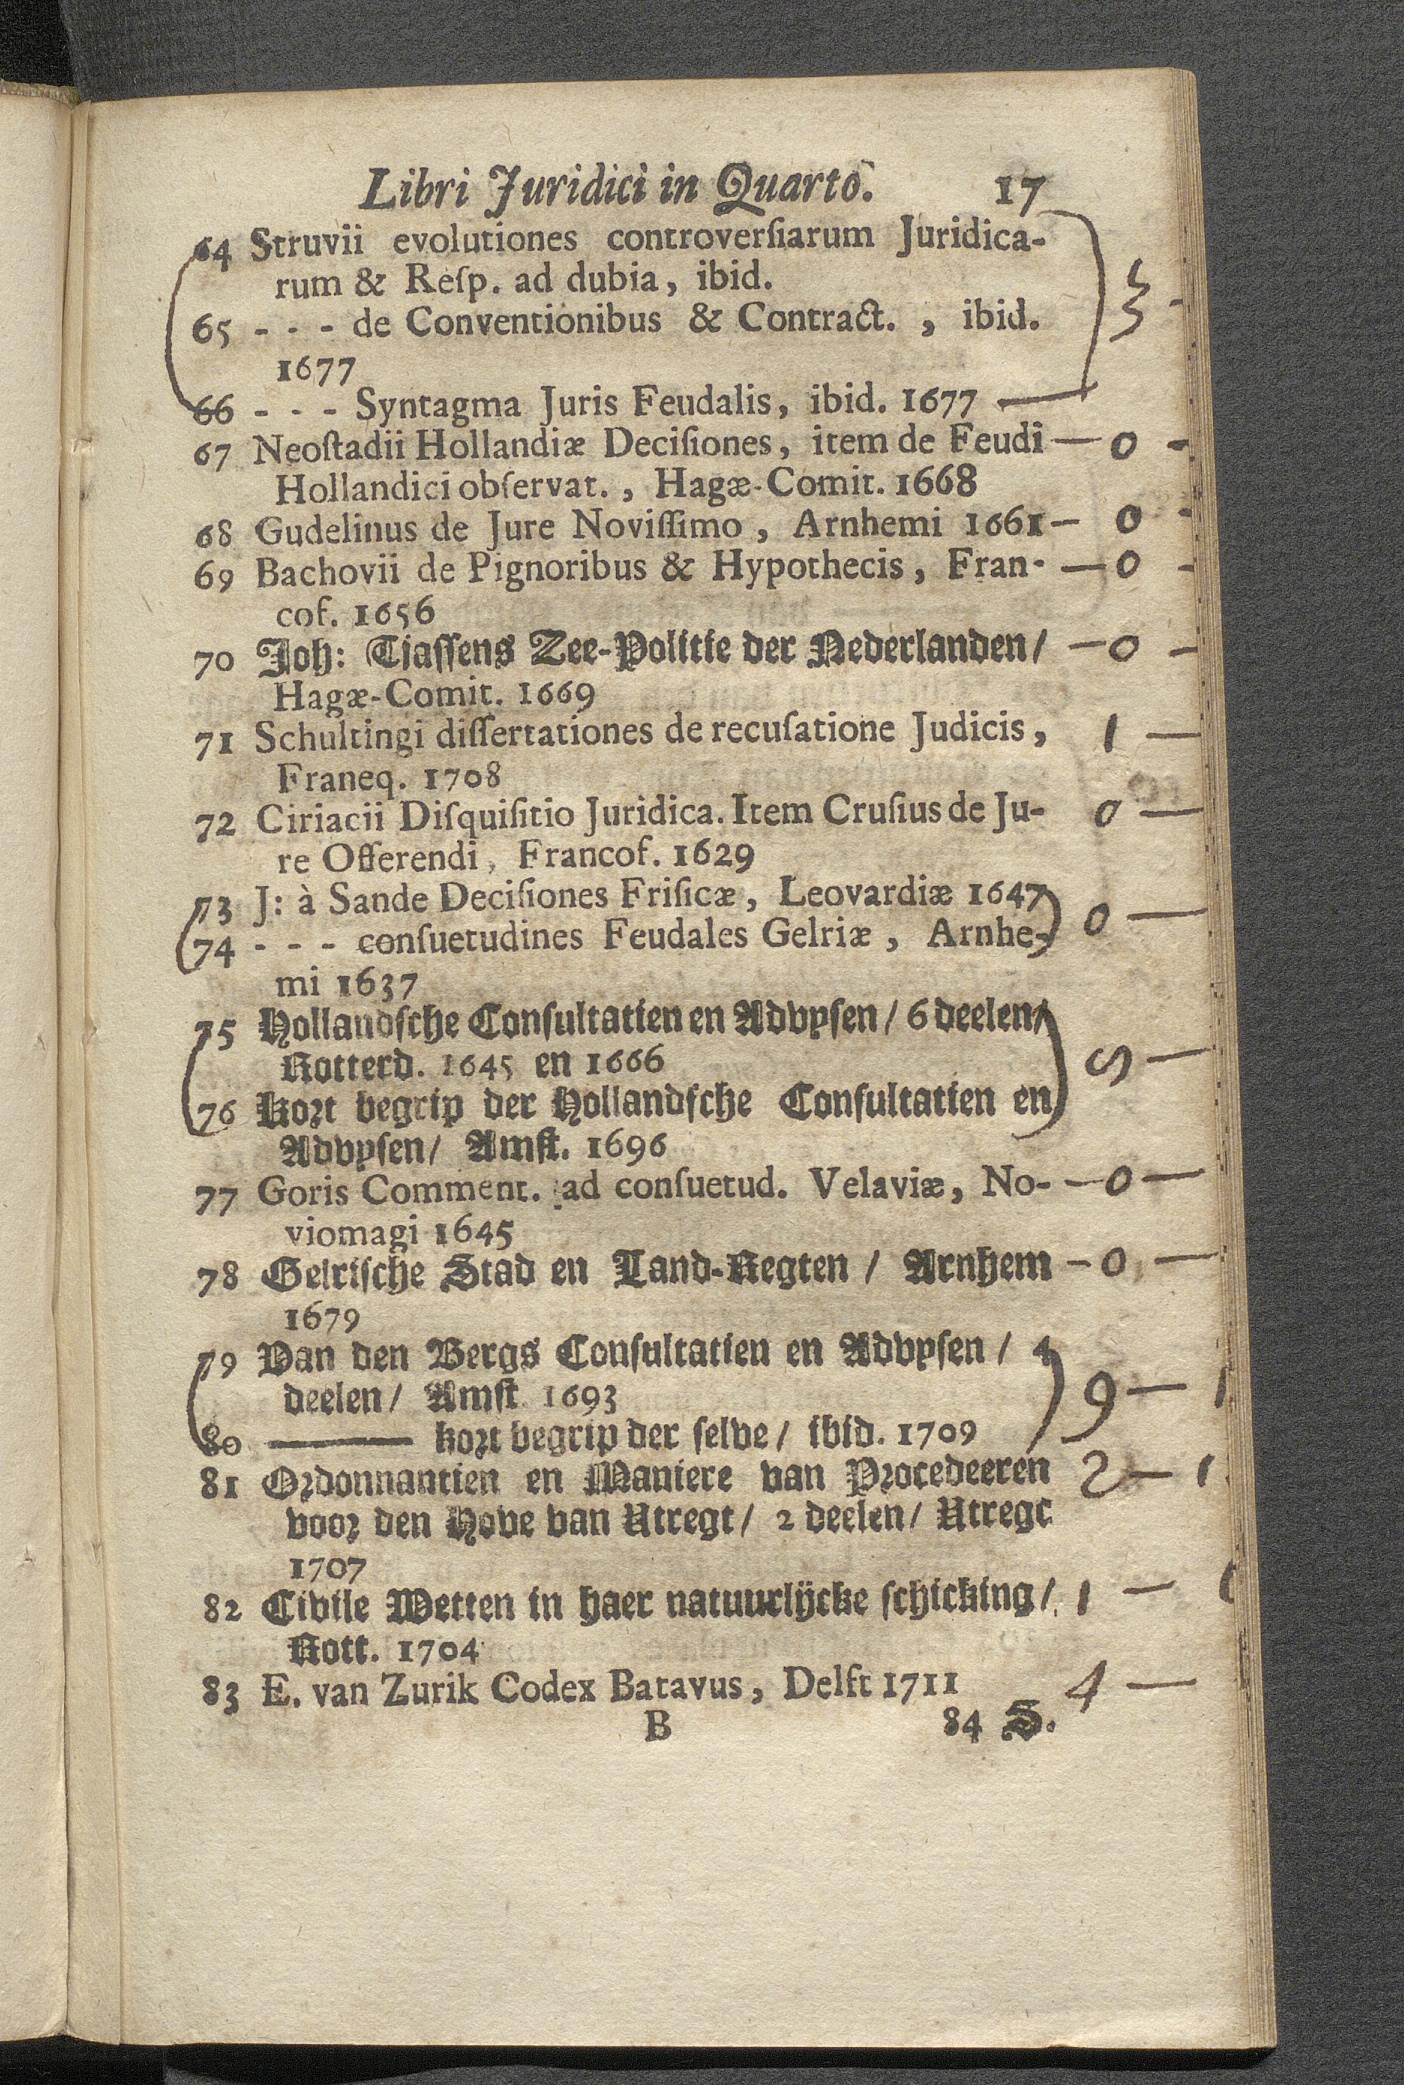 Libri Juridici in Quarto. 17
64 Struvii evolutiones controverſiarum Juridica-
rum & Reſp. ad dubia, ibid.
3 -
65 - - - de Conventionibus & Contract. , ibid.
1677
66 - - - Syntagma Juris Feudalis, ibid. 1677 —
67 Neoſtadii Hollandiæ Deciſiones, item de Feudi — 0 -
Hollandici obſervat. , Hagæ-Comit. 1668
68 Gudelinus de Jure Noviſſimo, Arnhemi 1661 — 0 -
69 Bachovii de Pignoribus & Hypothecis, Fran- — 0 -
cof. 1656
70 Joh: Tjaſſens Zee-Politie der Nederlanden / — 0 -
Hagæ-Comit. 1669
71 Schultingi diſſertationes de recuſatione Judicis, 1 —
Franeq. 1708
72 Ciriacii Diſquiſitio Juridica. Item Cruſius de Ju- 0 —
re Offerendi, Francof. 1629
73 J: à Sande Deciſiones Friſicæ, Leovardiæ 1647
0 —
74 - - - conſuetudines Feudales Gelriæ, Arnhe-
mi 1637
75 Hollandſche Conſultatien en Advyſen / 6 deelen /
Rotterd. 1645 en 1666
76 Kort begrip der Hollandſche Conſultatien en
Advyſen / Amſt. 1696
77 Goris Comment. ad conſuetud. Velaviæ, No- — 0 —
viomagi 1645
78 Gelriſche Stad en Land-Regten / Arnhem — 0 —
1679
79 Van den Bergs Conſultatien en Advyſen / 4
deelen / Amſt. 1693 9 — 1
80 ——— kort begrip der ſelve / ibid. 1709
81 Ordonnantien en Maniere van Procedeeren 2 — 1
voor den Hove van Utregt / 2 deelen / Utregt
1707
82 Civile Wetten in haer natuurlijcke ſchicking / 1 —
Rott. 1704
83 E. van Zurik Codex Batavus, Delft 1711 4 —
B 84 S.